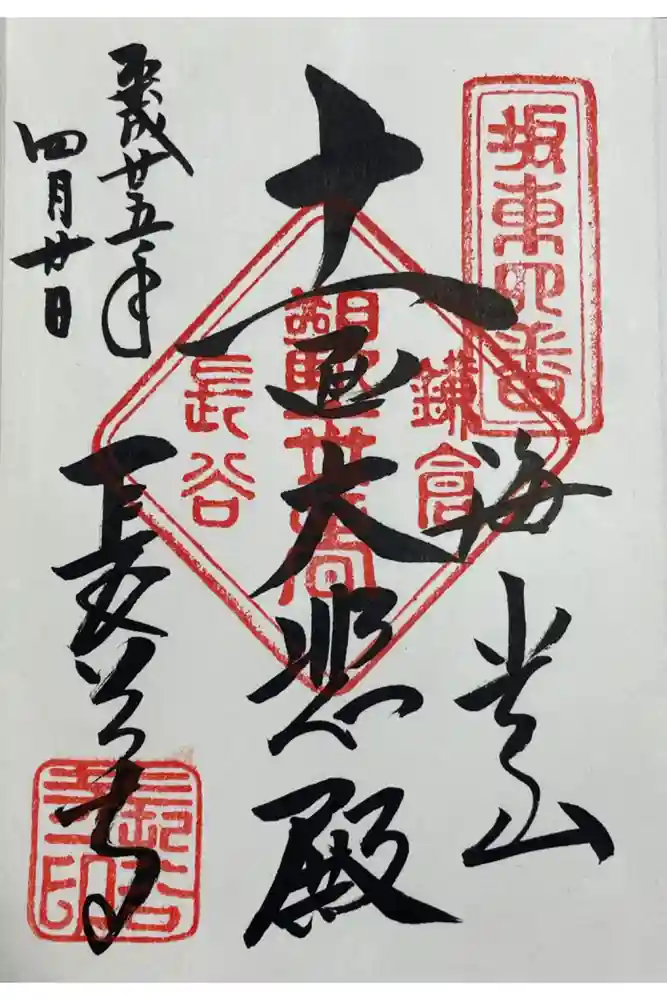 坂東四番
海光山
鎌倉
十一面大悲殿
觀世音
長谷
平成廿五年
四月廿日
長谷寺
長谷
寺印